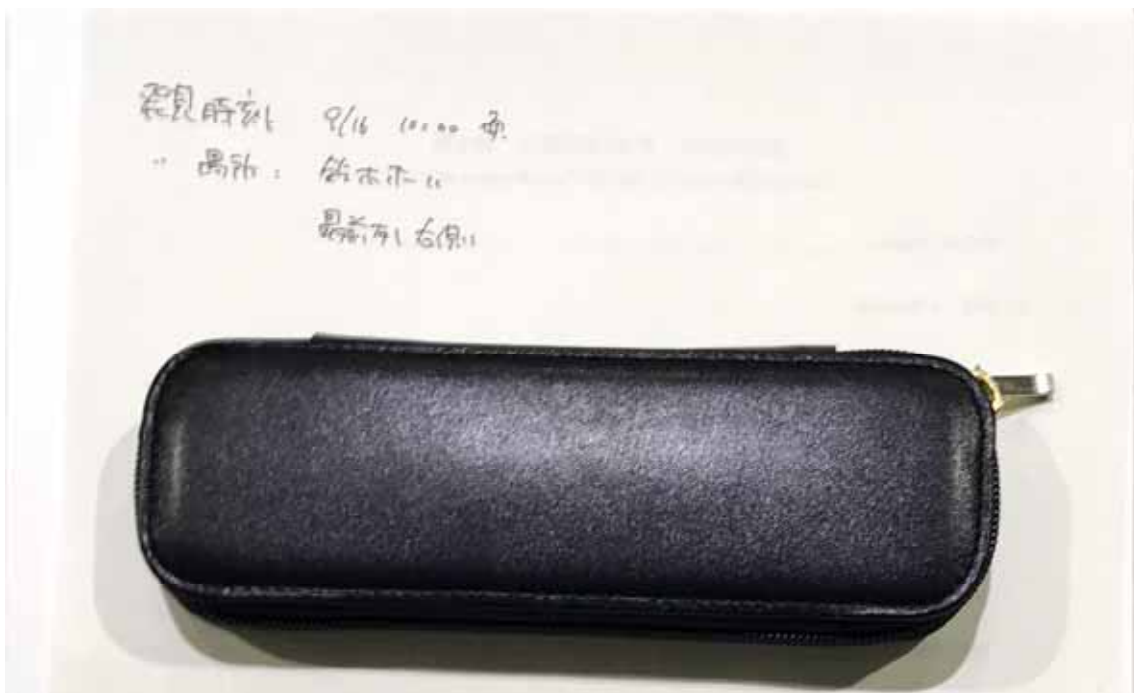 発見時刻 9/16 10:00 頃
〃 場所: 鈴木ホール
最前列 右側